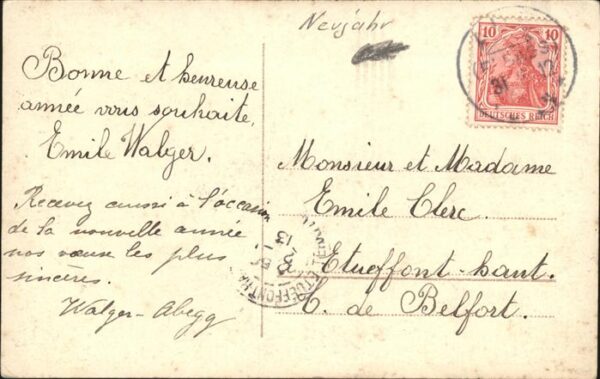 Neujahr
Bonne et heureuse
année vous souhaite,
Emile Walger.
Recevez aussi à l'occasion
de la nouvelle année
nos vœux les plus
sincères.
Walger-Abegg
10 10
DEUTSCHES REICH
31 12
Monsieur et Madame
Emile Clerc.
Etueffont-haut.
T. de Belfort.
ETUEFFONT